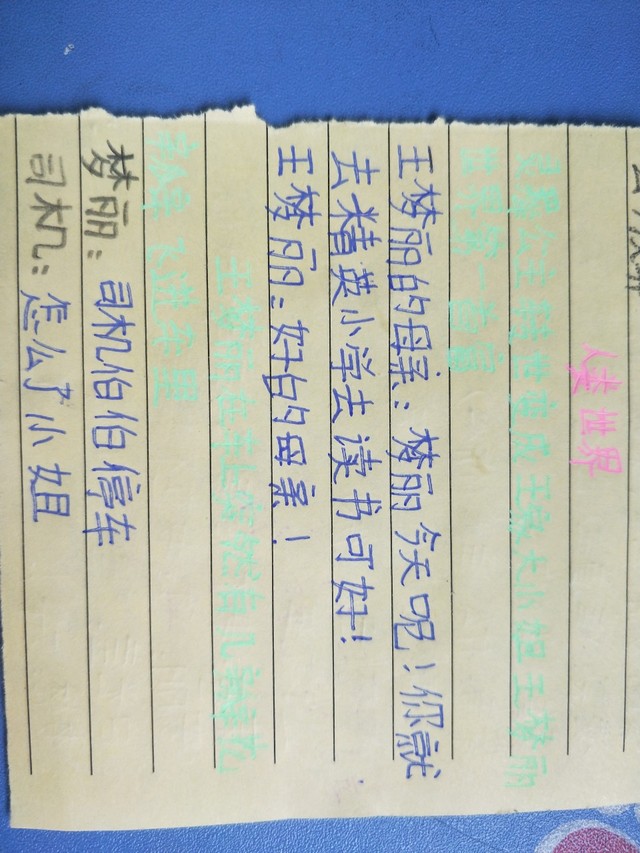 人类世界
公主转世变成王家大小姐王梦丽
世界第一首富
王梦丽的母亲：梦丽今天呢！你就
去精英小学去读书可好！
王梦丽：好的母亲！
王梦丽在车上突然有几
飞进车里
梦丽：司机伯伯停车
司机：怎么了小姐